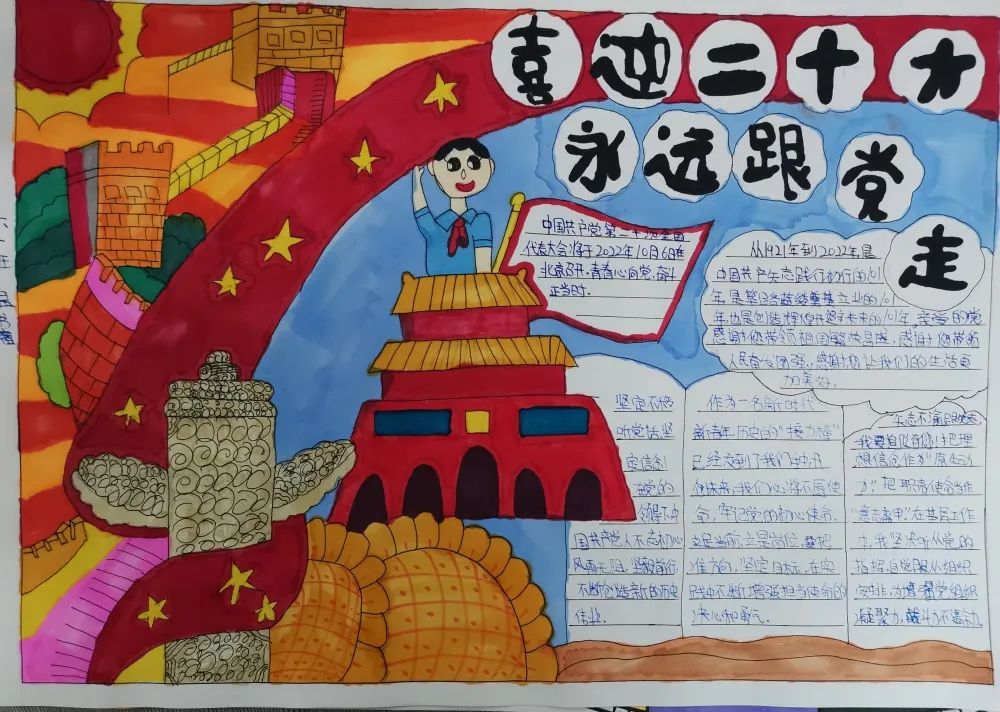 喜迎二十大
永远跟党走
中国共产党第二十次全国
代表大会将于2022年10月6日在
北京召开.青春心向党.奋斗
正当时.
从1921年到2022年是
中国共产矢志践行初行的101
年.是筚路蓝缕奠基立业的101
年.也是创造辉煌开辟未来的101年.亲爱的党
感谢您带领祖国繁荣昌盛.感谢您带领
人民奋发图强.感谢您让我们的生活更
加美好.
坚定不移
听党话.坚
定信念
在党的
领导下.中
国共产党人不忘初心
风雨无阻.坚毅前行
不断创造新的历史
伟业.
作为一名新时代
新青年.历史的"接力棒"
已经交到了我们手中.开
创未来.我们必将不辱使
命.牢记党的初心使命.
立足当前.立足岗位.要把
准方向.坚定目标.在实
践中不断增强担当使命的
决心和勇气.
矢志不渝跟党走.
我要自觉把理
想信念作为"原动
力".把职责使命当作
"意志盔甲".在基层工作
中.我坚决听从党的
指挥.自觉服从组织
安排.为增强党组织
凝聚力.战斗力不懈努力.